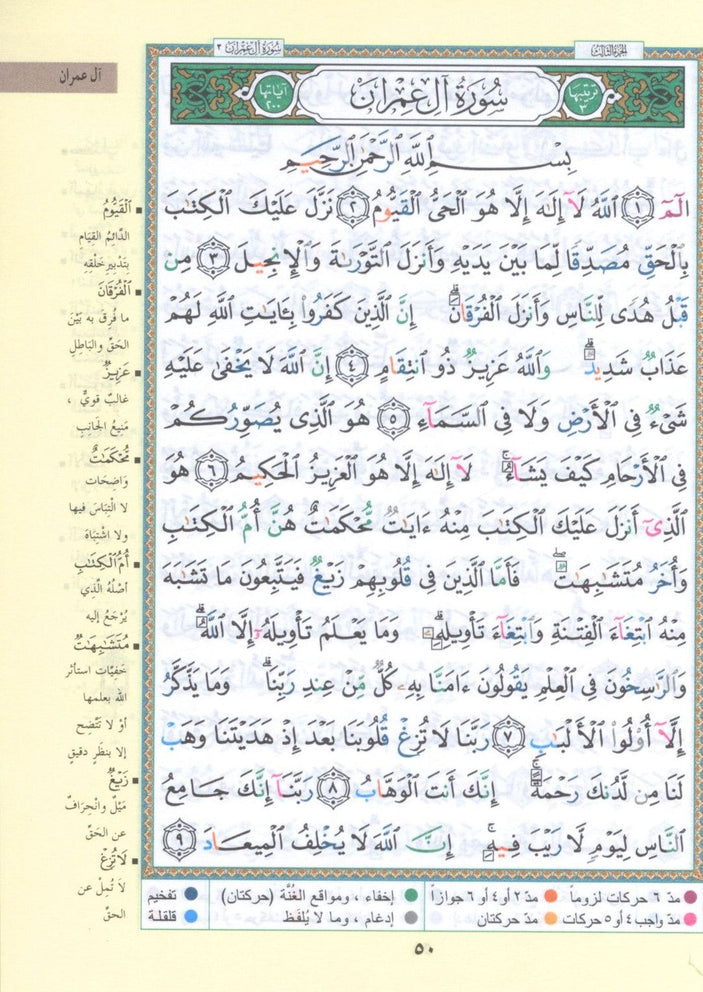 الجزء الثالث
سورة آل عمران ٣
آل عمران
ترتيبها ٣
سُورَةُ آلِ عِمْرَان
آياتها ٢٠٠
بِسْمِ ٱللَّهِ ٱلرَّحْمَٰنِ ٱلرَّحِيمِ
الٓمٓ ١ ٱللَّهُ لَآ إِلَٰهَ إِلَّا هُوَ ٱلْحَىُّ ٱلْقَيُّومُ ٢ نَزَّلَ عَلَيْكَ ٱلْكِتَٰبَ
بِٱلْحَقِّ مُصَدِّقًا لِّمَا بَيْنَ يَدَيْهِ وَأَنزَلَ ٱلتَّوْرَىٰةَ وَٱلْإِنجِيلَ ٣ مِن
قَبْلُ هُدًى لِّلنَّاسِ وَأَنزَلَ ٱلْفُرْقَانَ ۗ إِنَّ ٱلَّذِينَ كَفَرُوا۟ بِـَٔايَٰتِ ٱللَّهِ لَهُمْ
عَذَابٌ شَدِيدٌ ۗ وَٱللَّهُ عَزِيزٌ ذُو ٱنتِقَامٍ ٤ إِنَّ ٱللَّهَ لَا يَخْفَىٰ عَلَيْهِ
شَىْءٌ فِى ٱلْأَرْضِ وَلَا فِى ٱلسَّمَآءِ ٥ هُوَ ٱلَّذِى يُصَوِّرُكُمْ
فِى ٱلْأَرْحَامِ كَيْفَ يَشَآءُ ۚ لَآ إِلَٰهَ إِلَّا هُوَ ٱلْعَزِيزُ ٱلْحَكِيمُ ٦ هُوَ
ٱلَّذِىٓ أَنزَلَ عَلَيْكَ ٱلْكِتَٰبَ مِنْهُ ءَايَٰتٌ مُّحْكَمَٰتٌ هُنَّ أُمُّ ٱلْكِتَٰبِ
وَأُخَرُ مُتَشَٰبِهَٰتٌ ۖ فَأَمَّا ٱلَّذِينَ فِى قُلُوبِهِمْ زَيْغٌ فَيَتَّبِعُونَ مَا تَشَٰبَهَ
مِنْهُ ٱبْتِغَآءَ ٱلْفِتْنَةِ وَٱبْتِغَآءَ تَأْوِيلِهِۦ ۗ وَمَا يَعْلَمُ تَأْوِيلَهُۥٓ إِلَّا ٱللَّهُ ۗ
وَٱلرَّٰسِخُونَ فِى ٱلْعِلْمِ يَقُولُونَ ءَامَنَّا بِهِۦ كُلٌّ مِّنْ عِندِ رَبِّنَا ۗ وَمَا يَذَّكَّرُ
إِلَّآ أُو۟لُوا۟ ٱلْأَلْبَٰبِ ٧ رَبَّنَا لَا تُزِغْ قُلُوبَنَا بَعْدَ إِذْ هَدَيْتَنَا وَهَبْ
لَنَا مِن لَّدُنكَ رَحْمَةً ۚ إِنَّكَ أَنتَ ٱلْوَهَّابُ ٨ رَبَّنَآ إِنَّكَ جَامِعُ
ٱلنَّاسِ لِيَوْمٍ لَّا رَيْبَ فِيهِ ۚ إِنَّ ٱللَّهَ لَا يُخْلِفُ ٱلْمِيعَادَ ٩
▪ ٱلْقَيُّومُ
الدَّائِمُ القِيَام
بِتَدْبِيرِ خَلْقِهِ
▪ ٱلْفُرْقَانَ
ما فُرِقَ به بَيْنَ
الحَقِّ والبَاطِلِ
▪ عَزِيزٌ
غالبٌ قويٌّ ،
مَنِيعُ الجَانِبِ
▪ مُّحْكَمَٰتٌ
وَاضِحَات
لا الْتِبَاسَ فيها
ولا اشْتِبَاهَ
▪ أُمُّ ٱلْكِتَٰبِ
أصْلُهُ الذي
يُرْجَعُ إليه
▪ مُتَشَٰبِهَٰتٌ
خَفِيَّات استأثر
الله بعلمها
أوْ لا تَتَّضح
إلا بنظرٍ دقيقٍ
▪ زَيْغٌ
مَيْلٌ وانْحِرَافٌ
عن الحَقِّ
▪ لَا تُزِغْ
لاَ تُمِلْ عن
الحقِّ
مدّ ٦ حركات لزوماً
مدّ ٢ أو ٤ أو ٦ جوازاً
إخفاء ، ومواقع الغُنَّة (حركتان)
تفخيم
مدّ واجب ٤ أو ٥ حركات
مدّ حركتان
إدغام ، وما لا يُلفَظ
قلقلة
٥٠